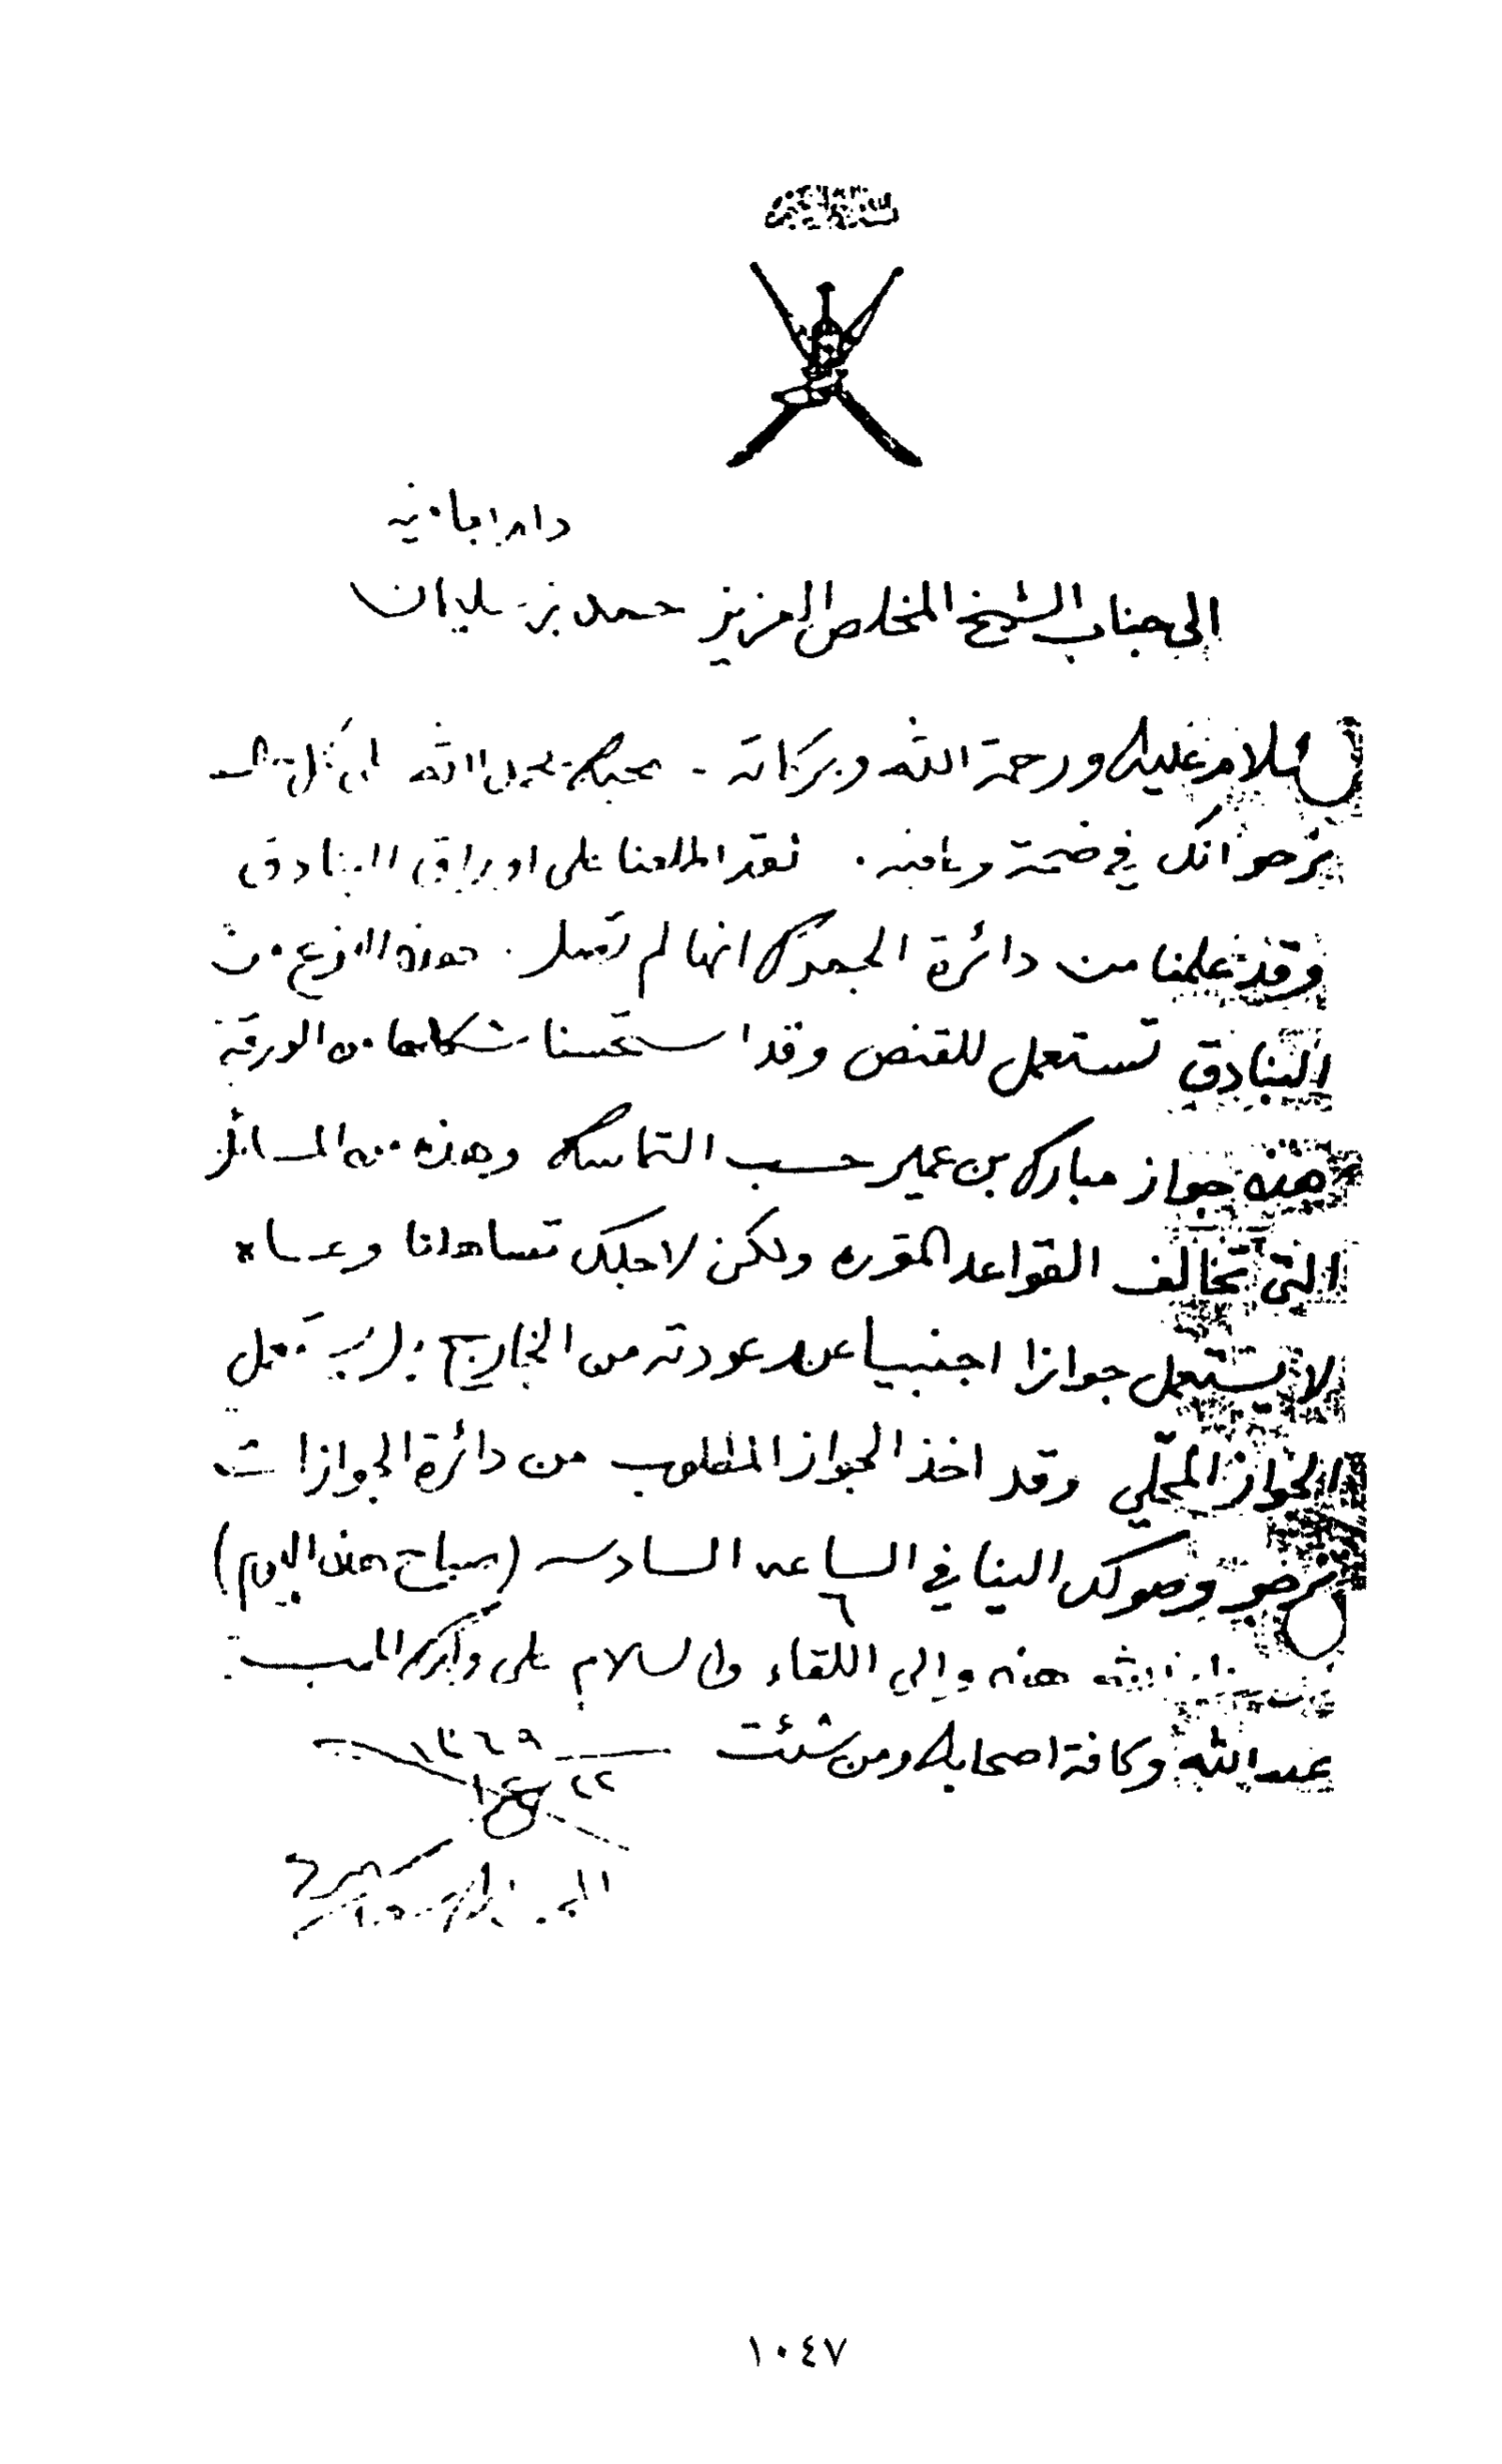 الى جناب الشيخ المخلص العزيز حمد بن سليمان
سلام عليك ورحمة الله وبركاته - محبك بحمد الله
نرجو انك في صحة وعافيه . لقد اطلعنا على اوراق البنادق
وقد علمنا من دائرة الجمرك انها لم تصل . هذه النوع من
البنادق تستعمل للقنص وقد استحسنا شكلها من الورقة
هذه جواز مبارك بن عمير حسب التماسك وهذه من المسائل
التي تخالف القواعد المقرره ولكن لاجلك تساهلنا وعساه
لا يستعمل جوازا اجنبيا عند عودته من الخارج بل يستعمل
الجواز المحلّي وقد اخذ الجواز المطلوب من دائرة الجوازات
نرجو وصولك الينا في الساعه السادسه (صباح هذا اليوم)
٦
هذه والى اللقاء والسلام على ولدك المحب
عبدالله وكافة اصحابك ومن شئت
١٣٦٩
٢٢
١٠٤٧